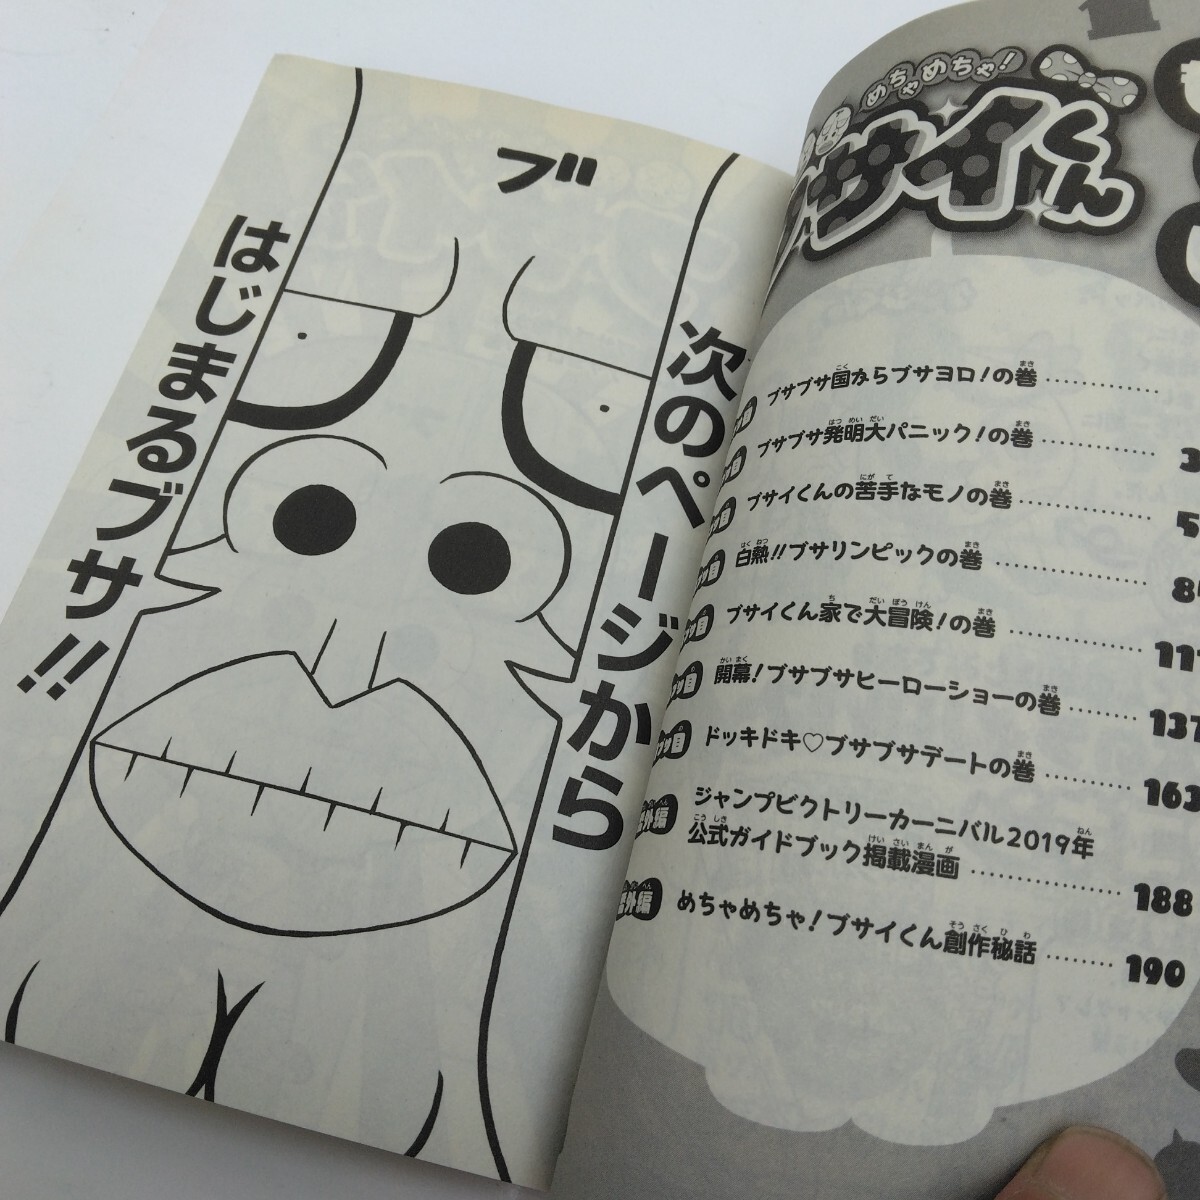 ブ
次のページから
はじまるブサ!!
めちゃめちゃ!
ブサイくん
ブサブサ国ならブサヨロ!の巻
ブサブサ発明大パニック!の巻
ブサイくんの苦手なモノの巻
白熱!!ブサリンピックの巻
ブサイくん家で大冒険!の巻 111
開幕!ブサブサヒーローショーの巻 137
ドッキドキ♡ブサブサデートの巻 163
番外編 ジャンプビクトリーカーニバル2019年
公式ガイドブック掲載漫画 188
番外編 めちゃめちゃ!ブサイくん創作秘話 190